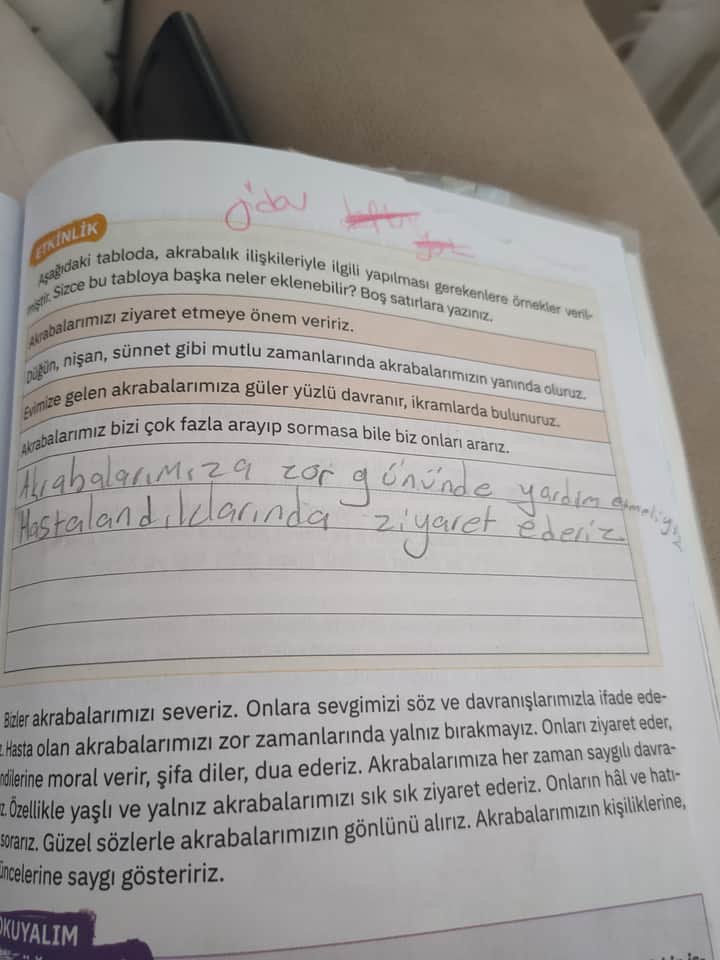 ETKİNLİK
Aşağıdaki tabloda, akrabalık ilişkileriyle ilgili yapılması gerekenlere örnekler veril-
miştir. Sizce bu tabloya başka neler eklenebilir? Boş satırlara yazınız.
Akrabalarımızı ziyaret etmeye önem veririz.
Düğün, nişan, sünnet gibi mutlu zamanlarında akrabalarımızın yanında oluruz.
Evimize gelen akrabalarımıza güler yüzlü davranır, ikramlarda bulunuruz.
Akrabalarımız bizi çok fazla arayıp sormasa bile biz onları ararız.
Akrabalarımıza zor gününde yardım etmeliyiz
Hastalandıklarında ziyaret ederiz.
Bizler akrabalarımızı severiz. Onlara sevgimizi söz ve davranışlarımızla ifade ede-
z. Hasta olan akrabalarımızı zor zamanlarında yalnız bırakmayız. Onları ziyaret eder,
ndilerine moral verir, şifa diler, dua ederiz. Akrabalarımıza her zaman saygılı davra-
z. Özellikle yaşlı ve yalnız akrabalarımızı sık sık ziyaret ederiz. Onların hâl ve hatı-
sorarız. Güzel sözlerle akrabalarımızın gönlünü alırız. Akrabalarımızın kişiliklerine,
üncelerine saygı gösteririz.
OKUYALIM